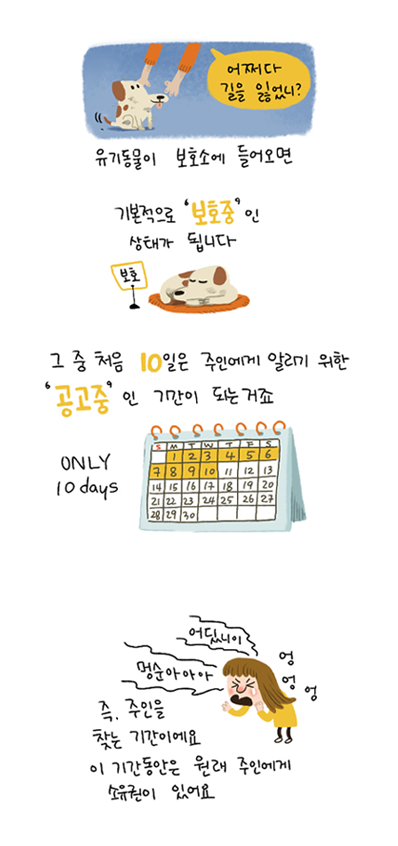 어쩌다
길을 잃었니?
유기동물이 보호소에 들어오면
기본적으로 '보호중'인
상태가 됩니다
보호
그 중 처음 10일은 주인에게 알리기 위한
'공고중'인 기간이 되는거죠
ONLY
10 days
S M T W T F S
1 2 3 4 5 6
7 8 9 10 11 12 13
14 15 16 17 18 19 20
21 22 23 24 25 26 27
28 29 30
어딨니이
멍순아아아
엉
엉
엉
즉, 주인을
찾는 기간이에요
이 기간동안은 원래 주인에게
소유권이 있어요